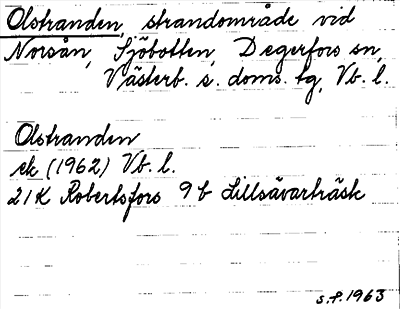 Olstranden, strandområde vid
Norsån, Sjöbotten, Degerfors sn,
Västerb. s. doms. tg, Vb. l.
Olstranden
ek (1962) Vb. l.
21K Robertsfors 9b Lillsävarträsk
s.f. 1963